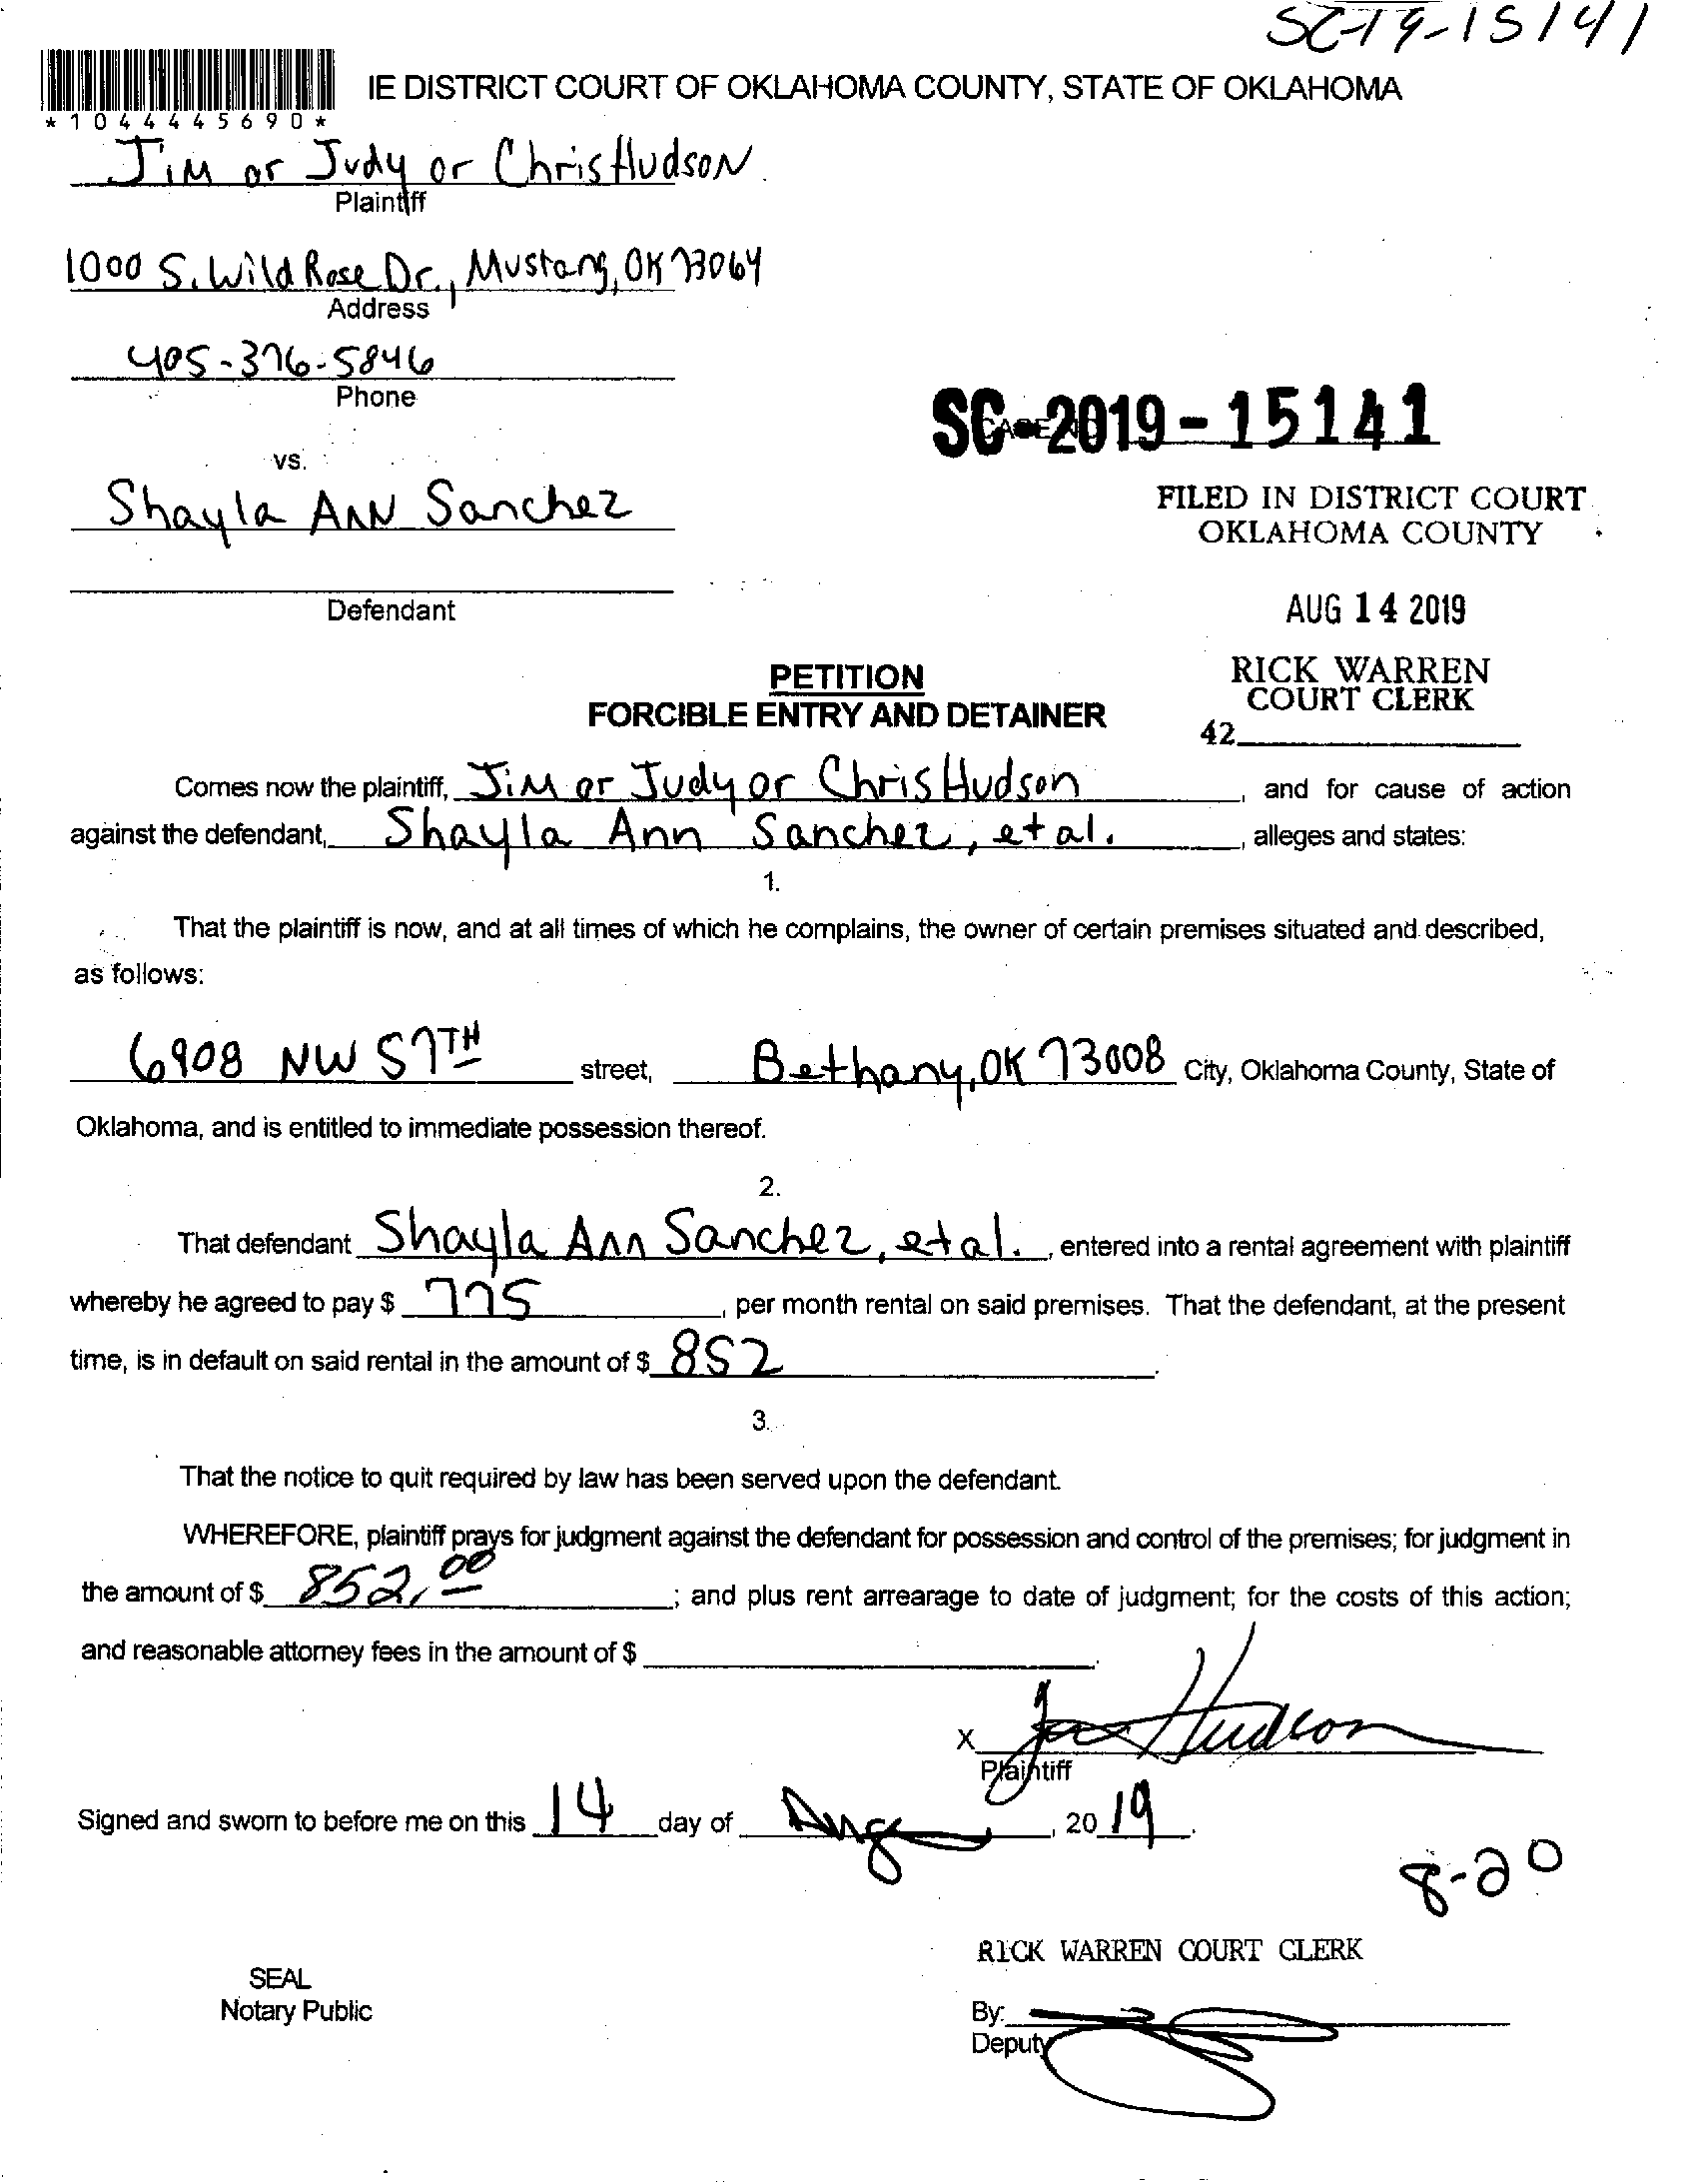 SC-19-15141
IE DISTRICT COURT OF OKLAHOMA COUNTY, STATE OF OKLAHOMA
*1044445690*
Jim or Judy or Chris Hudson
Plaintiff
1000 S. Wild Rose Dr., Mustang, OK 73064
Address
405-376-5846
Phone
SC-2019-15141
vs.
Shayla Ann Sanchez
FILED IN DISTRICT COURT
OKLAHOMA COUNTY
Defendant
AUG 14 2019
PETITION
FORCIBLE ENTRY AND DETAINER
RICK WARREN
COURT CLERK
42
Comes now the plaintiff, Jim or Judy or Chris Hudson, and for cause of action
against the defendant, Shayla Ann Sanchez, et al., alleges and states:
1.
That the plaintiff is now, and at all times of which he complains, the owner of certain premises situated and described,
as follows:
6908 NW 57TH street, Bethany, OK 73008 City, Oklahoma County, State of
Oklahoma, and is entitled to immediate possession thereof.
2.
That defendant Shayla Ann Sanchez, et al., entered into a rental agreement with plaintiff
whereby he agreed to pay $ 775, per month rental on said premises. That the defendant, at the present
time, is in default on said rental in the amount of $ 852.
3.
That the notice to quit required by law has been served upon the defendant.
WHEREFORE, plaintiff prays for judgment against the defendant for possession and control of the premises; for judgment in
the amount of $ 852.00; and plus rent arrearage to date of judgment; for the costs of this action;
and reasonable attorney fees in the amount of $
X Hudson
Plaintiff
Signed and sworn to before me on this 14 day of Aug, 20 19.
8-20
RICK WARREN COURT CLERK
SEAL
Notary Public
By:
Deputy